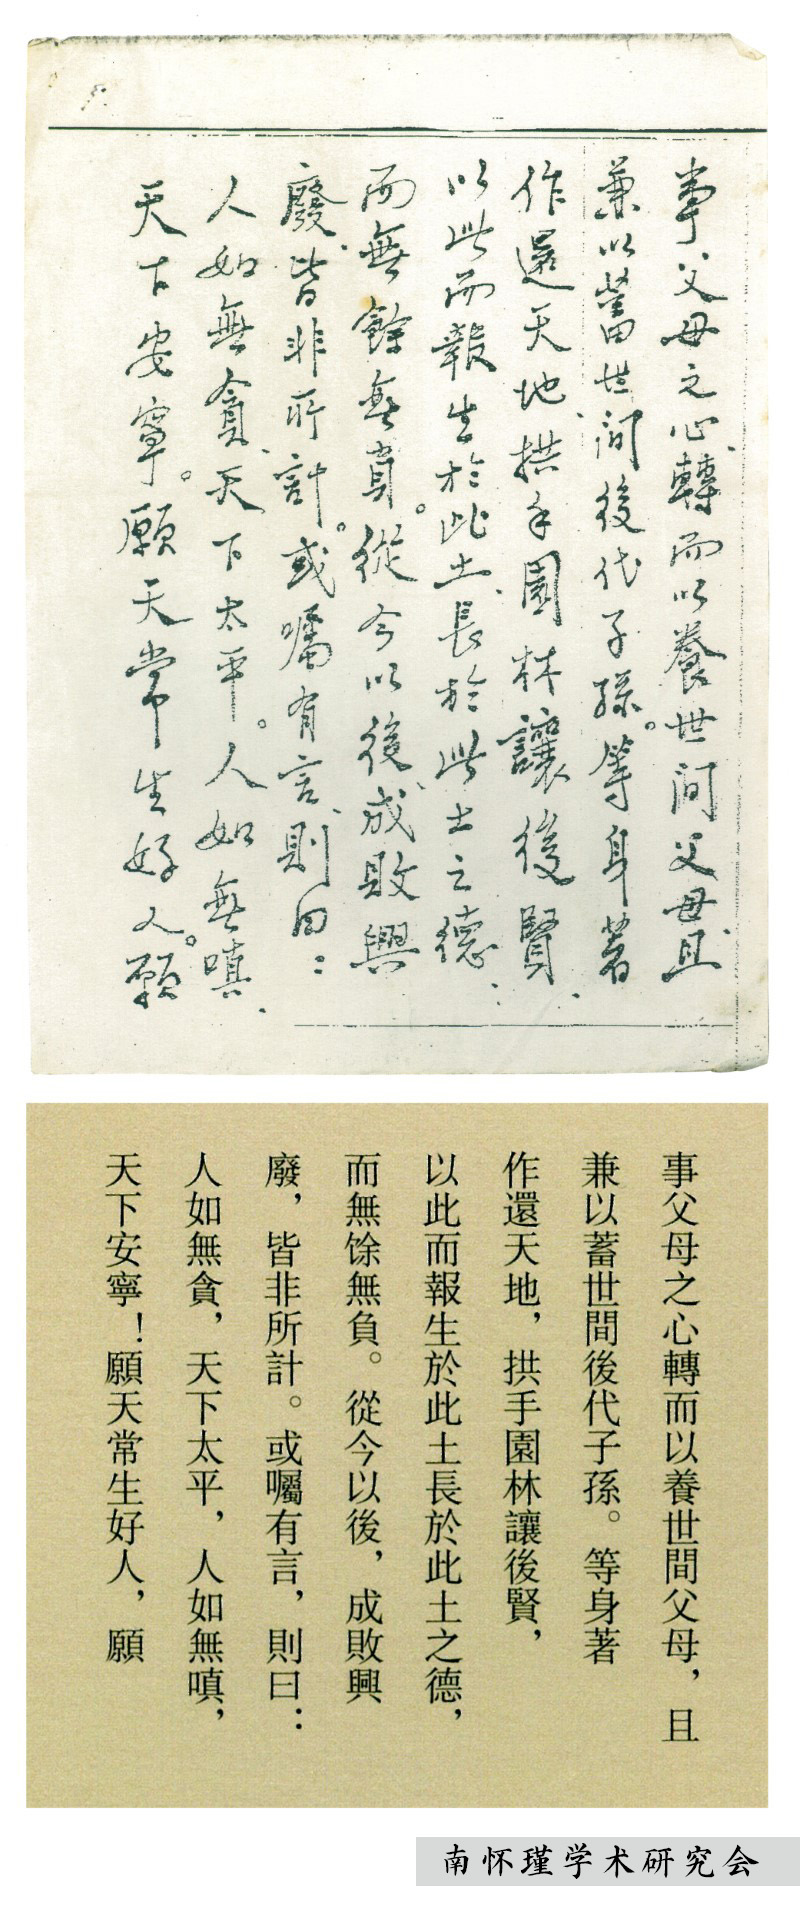 事父母之心、轉而以養世间父母、且
兼以蓄世间後代子孫。等身著
作還天地、拱手園林讓後賢、
以此而報生於此土、長於此土之德、
而無餘無負。從今以後、成敗興
廢、皆非所計。或囑有言、則曰：
人如無貪、天下太平。人如無嗔、
天下安寧。願天常生好人。願
事父母之心轉而以養世間父母，且
兼以蓄世間後代子孫。等身著
作還天地，拱手園林讓後賢，
以此而報生於此土長於此土之德，
而無馀無負。從今以後，成敗興
廢，皆非所計。或囑有言，則曰：
人如無貪，天下太平，人如無嗔，
天下安寧！願天常生好人，願
南怀瑾学术研究会